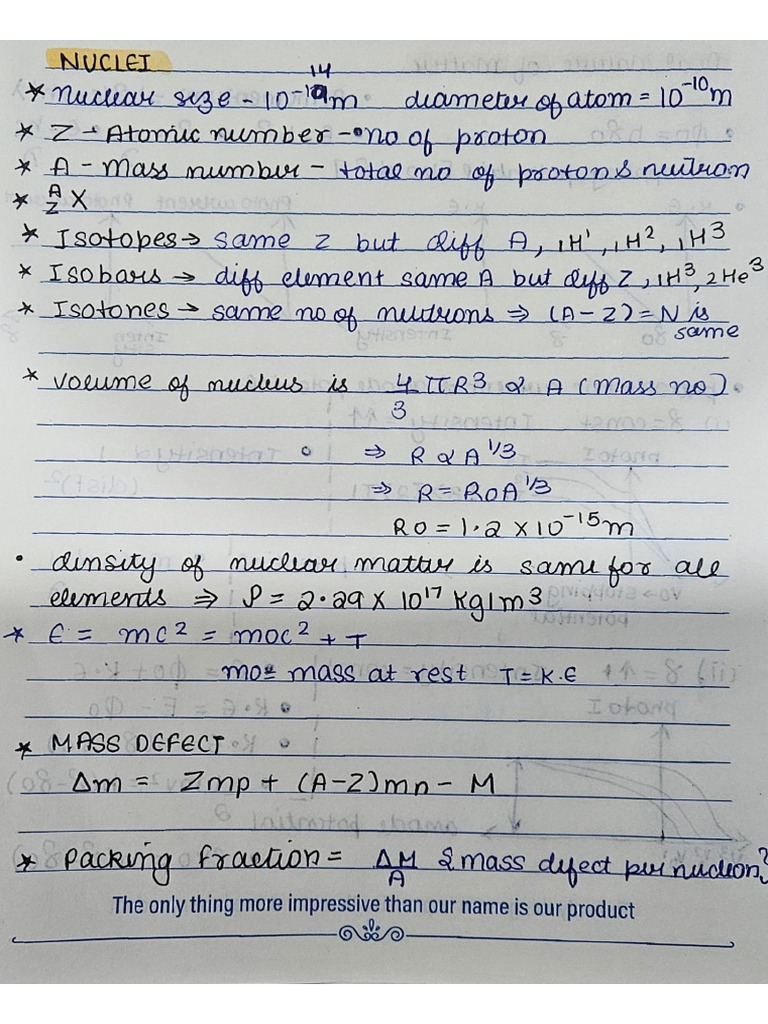 NUCLEI
* nuclear size - 10⁻¹⁴m diameter of atom = 10⁻¹⁰m
* Z - Atomic number - no of proton
* A - Mass number - total no of proton & neutron
* ᴬ_Z X
* Isotopes → same Z but diff A, ₁H¹, ₁H², ₁H³
* Isobars → diff element same A but diff Z, ₁H³, ₂He³
* Isotones → same no of neutrons ⇒ (A-Z) = N is
same
* volume of nucleus is 4/3 πR³ α A (mass no).
⇒ R α A^1/3
⇒ R = R0A^1/3
R0 = 1.2 × 10⁻¹⁵m
• density of nuclear matter is same for all
elements ⇒ ρ = 2.29 × 10¹⁷ Kg/m³
* E = mc² = moc² + T
mo = mass at rest T = K.E
* MASS DEFECT
Δm = Zmp + (A-Z)mn - M
* Packing fraction = ΔM/A {mass defect per nucleon}
The only thing more impressive than our name is our product